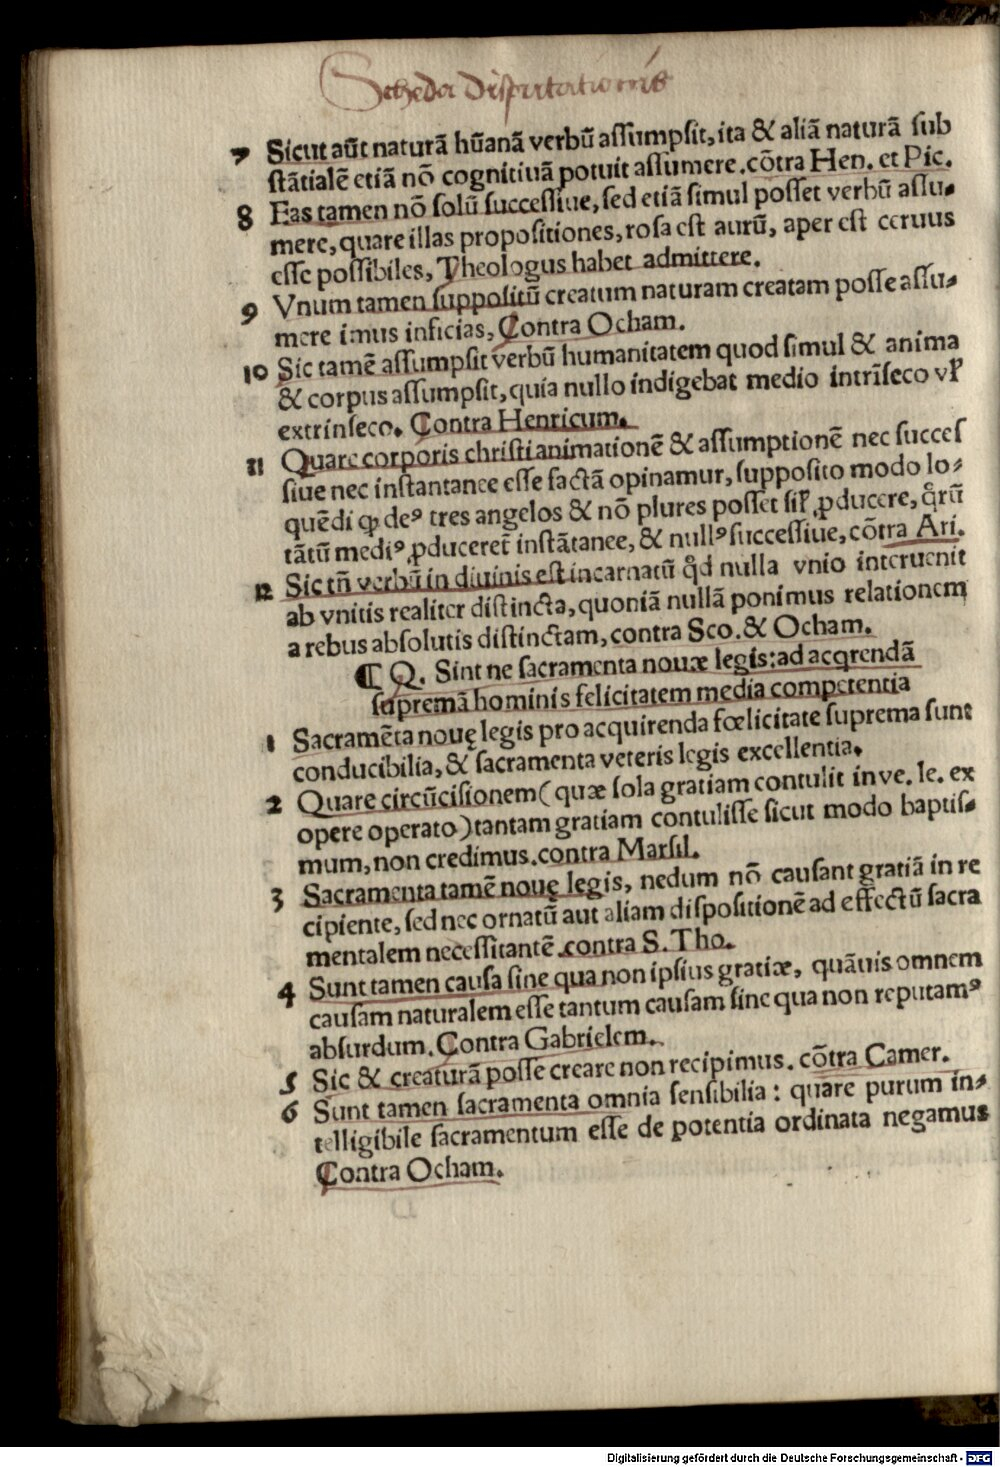 Scheda disputationis
7 Sicut aūt naturā hūanā verbū assumpsit, ita & aliā naturā sub
stātialē etiā nō cognitiuā potuit assumere. cōtra Hen. et Pic.
8 Eas tamen nō solū successiue, sed etiā simul posset verbū assu⸗
mere, quare illas propositiones, rosa est aurū, aper est ceruus
esse possibiles, Theologus habet admittere.
9 Vnum tamen suppositū creatum naturam creatam posse assu⸗
mere imus inficias, Contra Ocham.
10 Sic tamē assumpsit verbū humanitatem quod simul & anima
& corpus assumpsit, quia nullo indigebat medio intrīseco vꝉ
extrinseco. Contra Henricum.
11 Quare corporis christi animationē & assumptionē nec succes
siue nec instantanee esse factā opinamur, supposito modo lo⸗
quēdi ꝙ deꝰ tres angelos & nō plures posset siꝉ ꝓducere, q̊rū
tātū mediꝰ ꝓduceret̄ instātanee, & nullꝰ successiue, cōtra Ari.
12 Sic tñ verbū in diuinis est incarnatū q̊d nulla vnio interuenit
ab vnitis realiter distincta, quoniā nullā ponimus relationem
a rebus absolutis distinctam, contra Sco. & Ocham.
¶ Q. Sint ne sacramenta nouæ legis: ad acqrendā
supremā hominis felicitatem media competentia
1 Sacramēta nouę legis pro acquirenda fœlicitate suprema sunt
conducibilia, & sacramenta veteris legis excellentia.
2 Quare circūcisionem (quæ sola gratiam contulit in ve. le. ex
opere operato) tantam gratiam contulisse sicut modo baptis⸗
mum, non credimus. contra Marsil.
3 Sacramenta tamē nouę legis, nedum nō causant gratiā in re
cipiente, sed nec ornatū aut aliam dispositionē ad effectū sacra
mentalem necessitantē. contra S. Tho.
4 Sunt tamen causa sine qua non ipsius gratiæ, quāuis omnem
causam naturalem esse tantum causam sine qua non reputamꝰ
absurdum. Contra Gabrielem.
5 Sic & creaturā posse creare non recipimus. cōtra Camer.
6 Sunt tamen sacramenta omnia sensibilia: quare purum in⸗
telligibile sacramentum esse de potentia ordinata negamus
Contra Ocham.
Digitalisierung gefördert durch die Deutsche Forschungsgemeinschaft - DFG